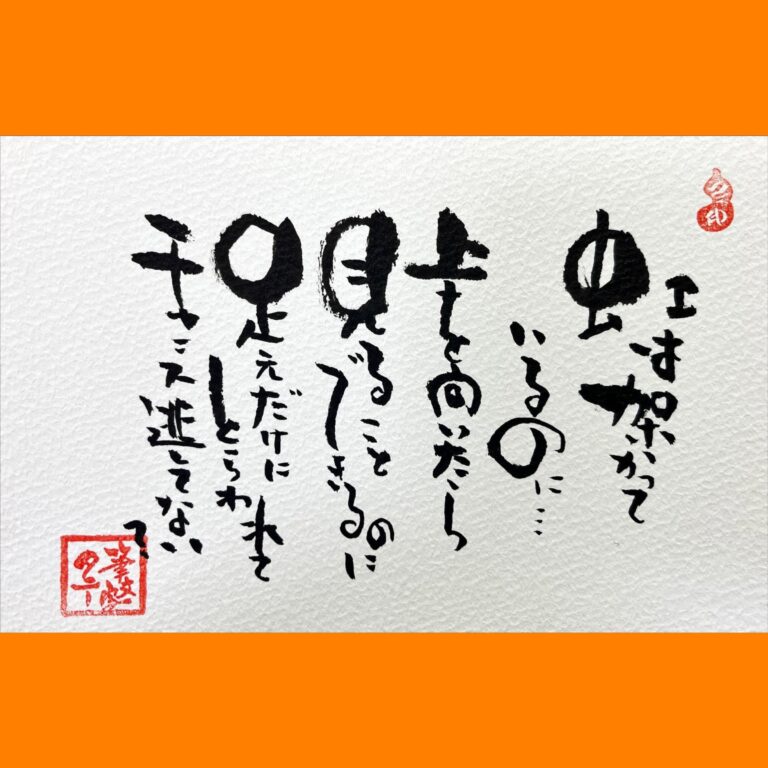 虹は架かって
いるのに…
上を向いたら
見ること
できるのに
足元だけに
とらわれて
チャンス逃してない
で